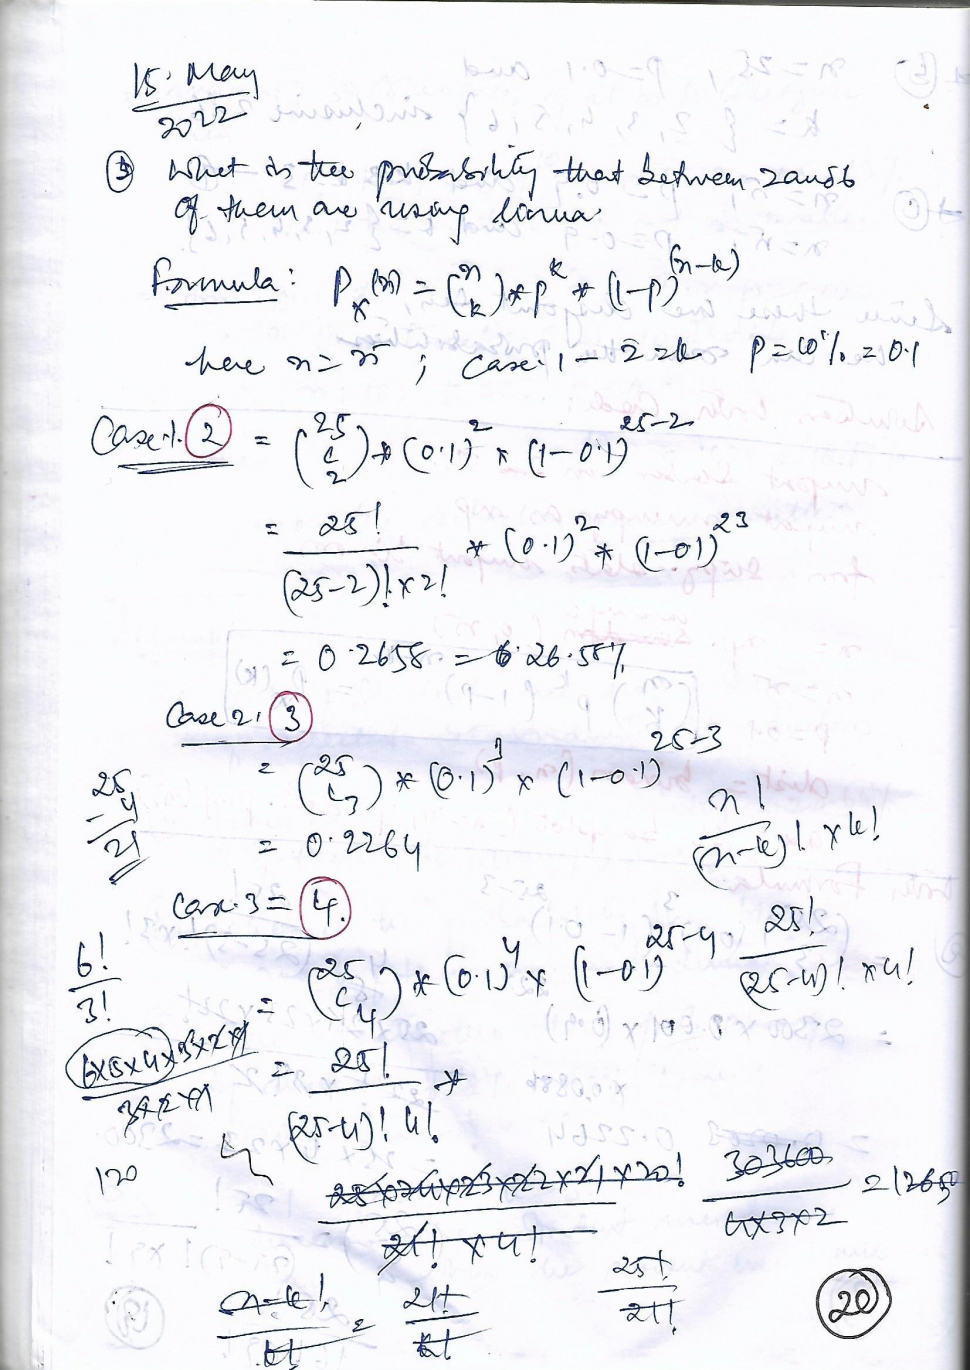 15. May
2022
③ What is the probability that between 2 and 6
of them are using
Formula: Pₓ(n) = (n k) * p^k * (1-p)^(n-k)
here n = 25 ; Case.1 - 2 = k P = 10% = 0.1
Case.1. ② = (25 c 2) * (0.1)^2 * (1-0.1)^25-2
= 25! / (25-2)! x 2! * (0.1)^2 * (1-01)^23
= 0.2658 = 26.58%
Case 2. ③
= (25 c 3) * (0.1)^3 x (1-0.1)^25-3
25 - 4 / 21
n! / (n-k)! x k!
= 0.2264
Case.3 = ④.
6! / 3!
= (25 c 4) * (0.1)^4 x (1-0.1)^25-4
25! / (25-4)! x 4!
6x5x4x3x2x1 / 3x2x1
= 25! / (25-4)! 4! *
120
25x24x23x22x21x20! / 21! x 4!
303600 / 4x3x2 = 12650
n-k! / k! = 21! / k!
25! / 21!
20